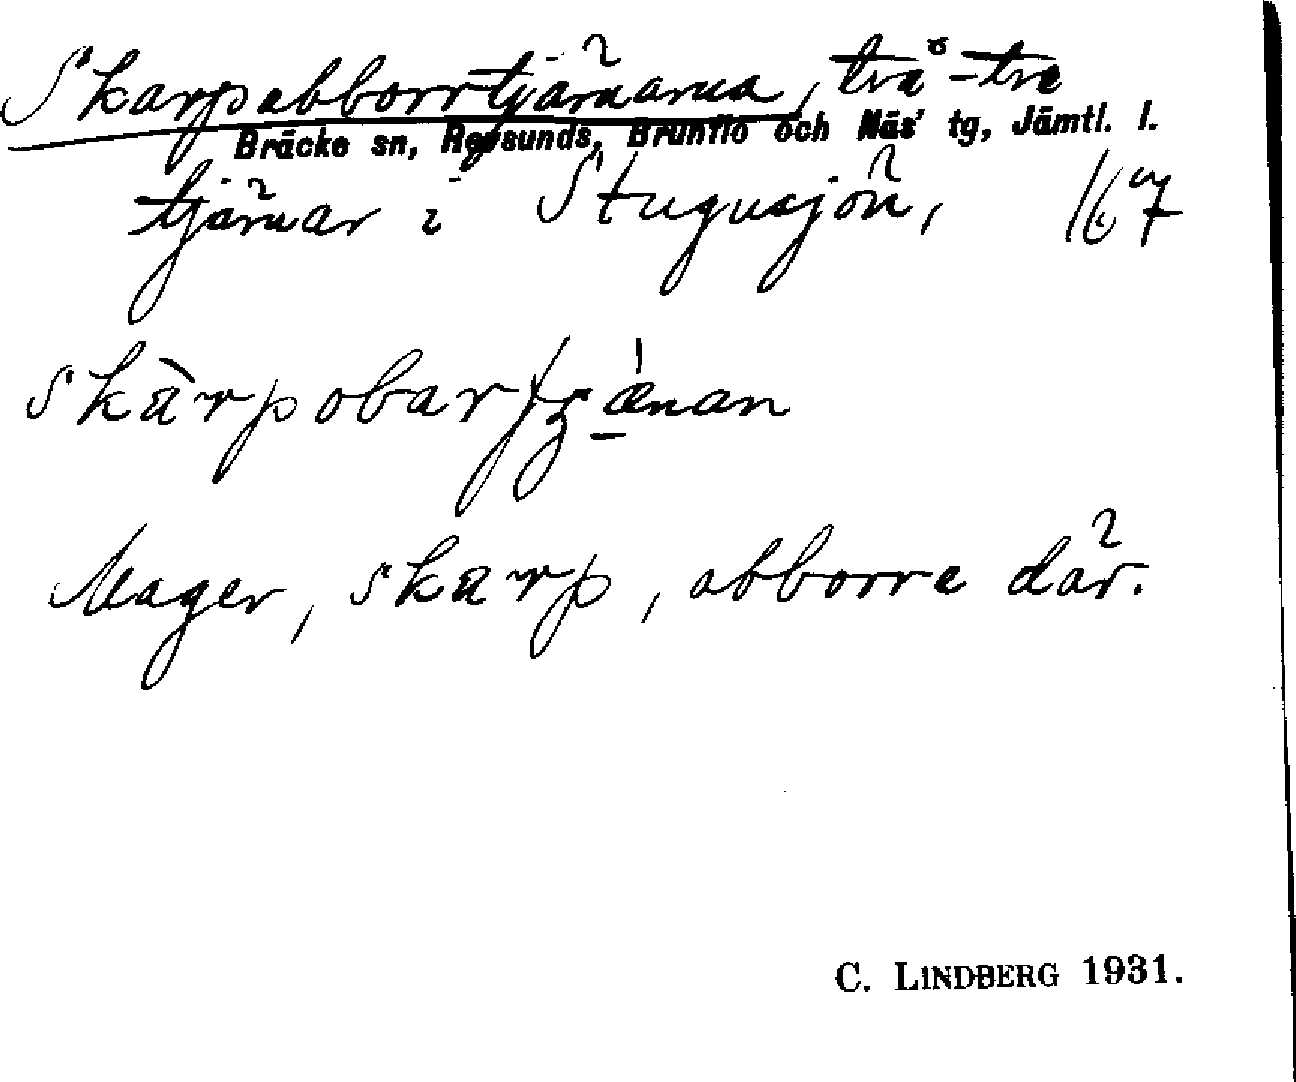 Skarpabborrtjärnarna, två-tre
Bräcke sn, Revsunds, Brunflo och Näs' tg, Jämtl. l.
tjärnar i Stugusjön, 167
Mager, skarp, abborre där.
C. LINDBERG 1931.